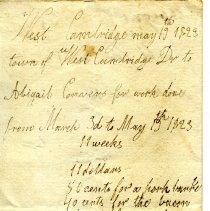 West Cambridge may 19th 1823
town of West Cambridge Dr to
Abigail Convers for work done
from March 3d to May 19th 1823
11 weeks
11 dollars
56 cents for a pork
40 cents for the